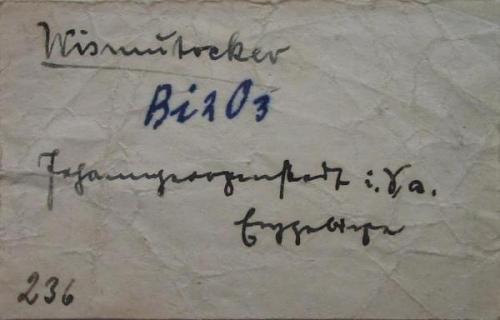 Wismutocker
Bi2O3
Johanngeorgenstadt i. Sa.
Erzgebirge
236